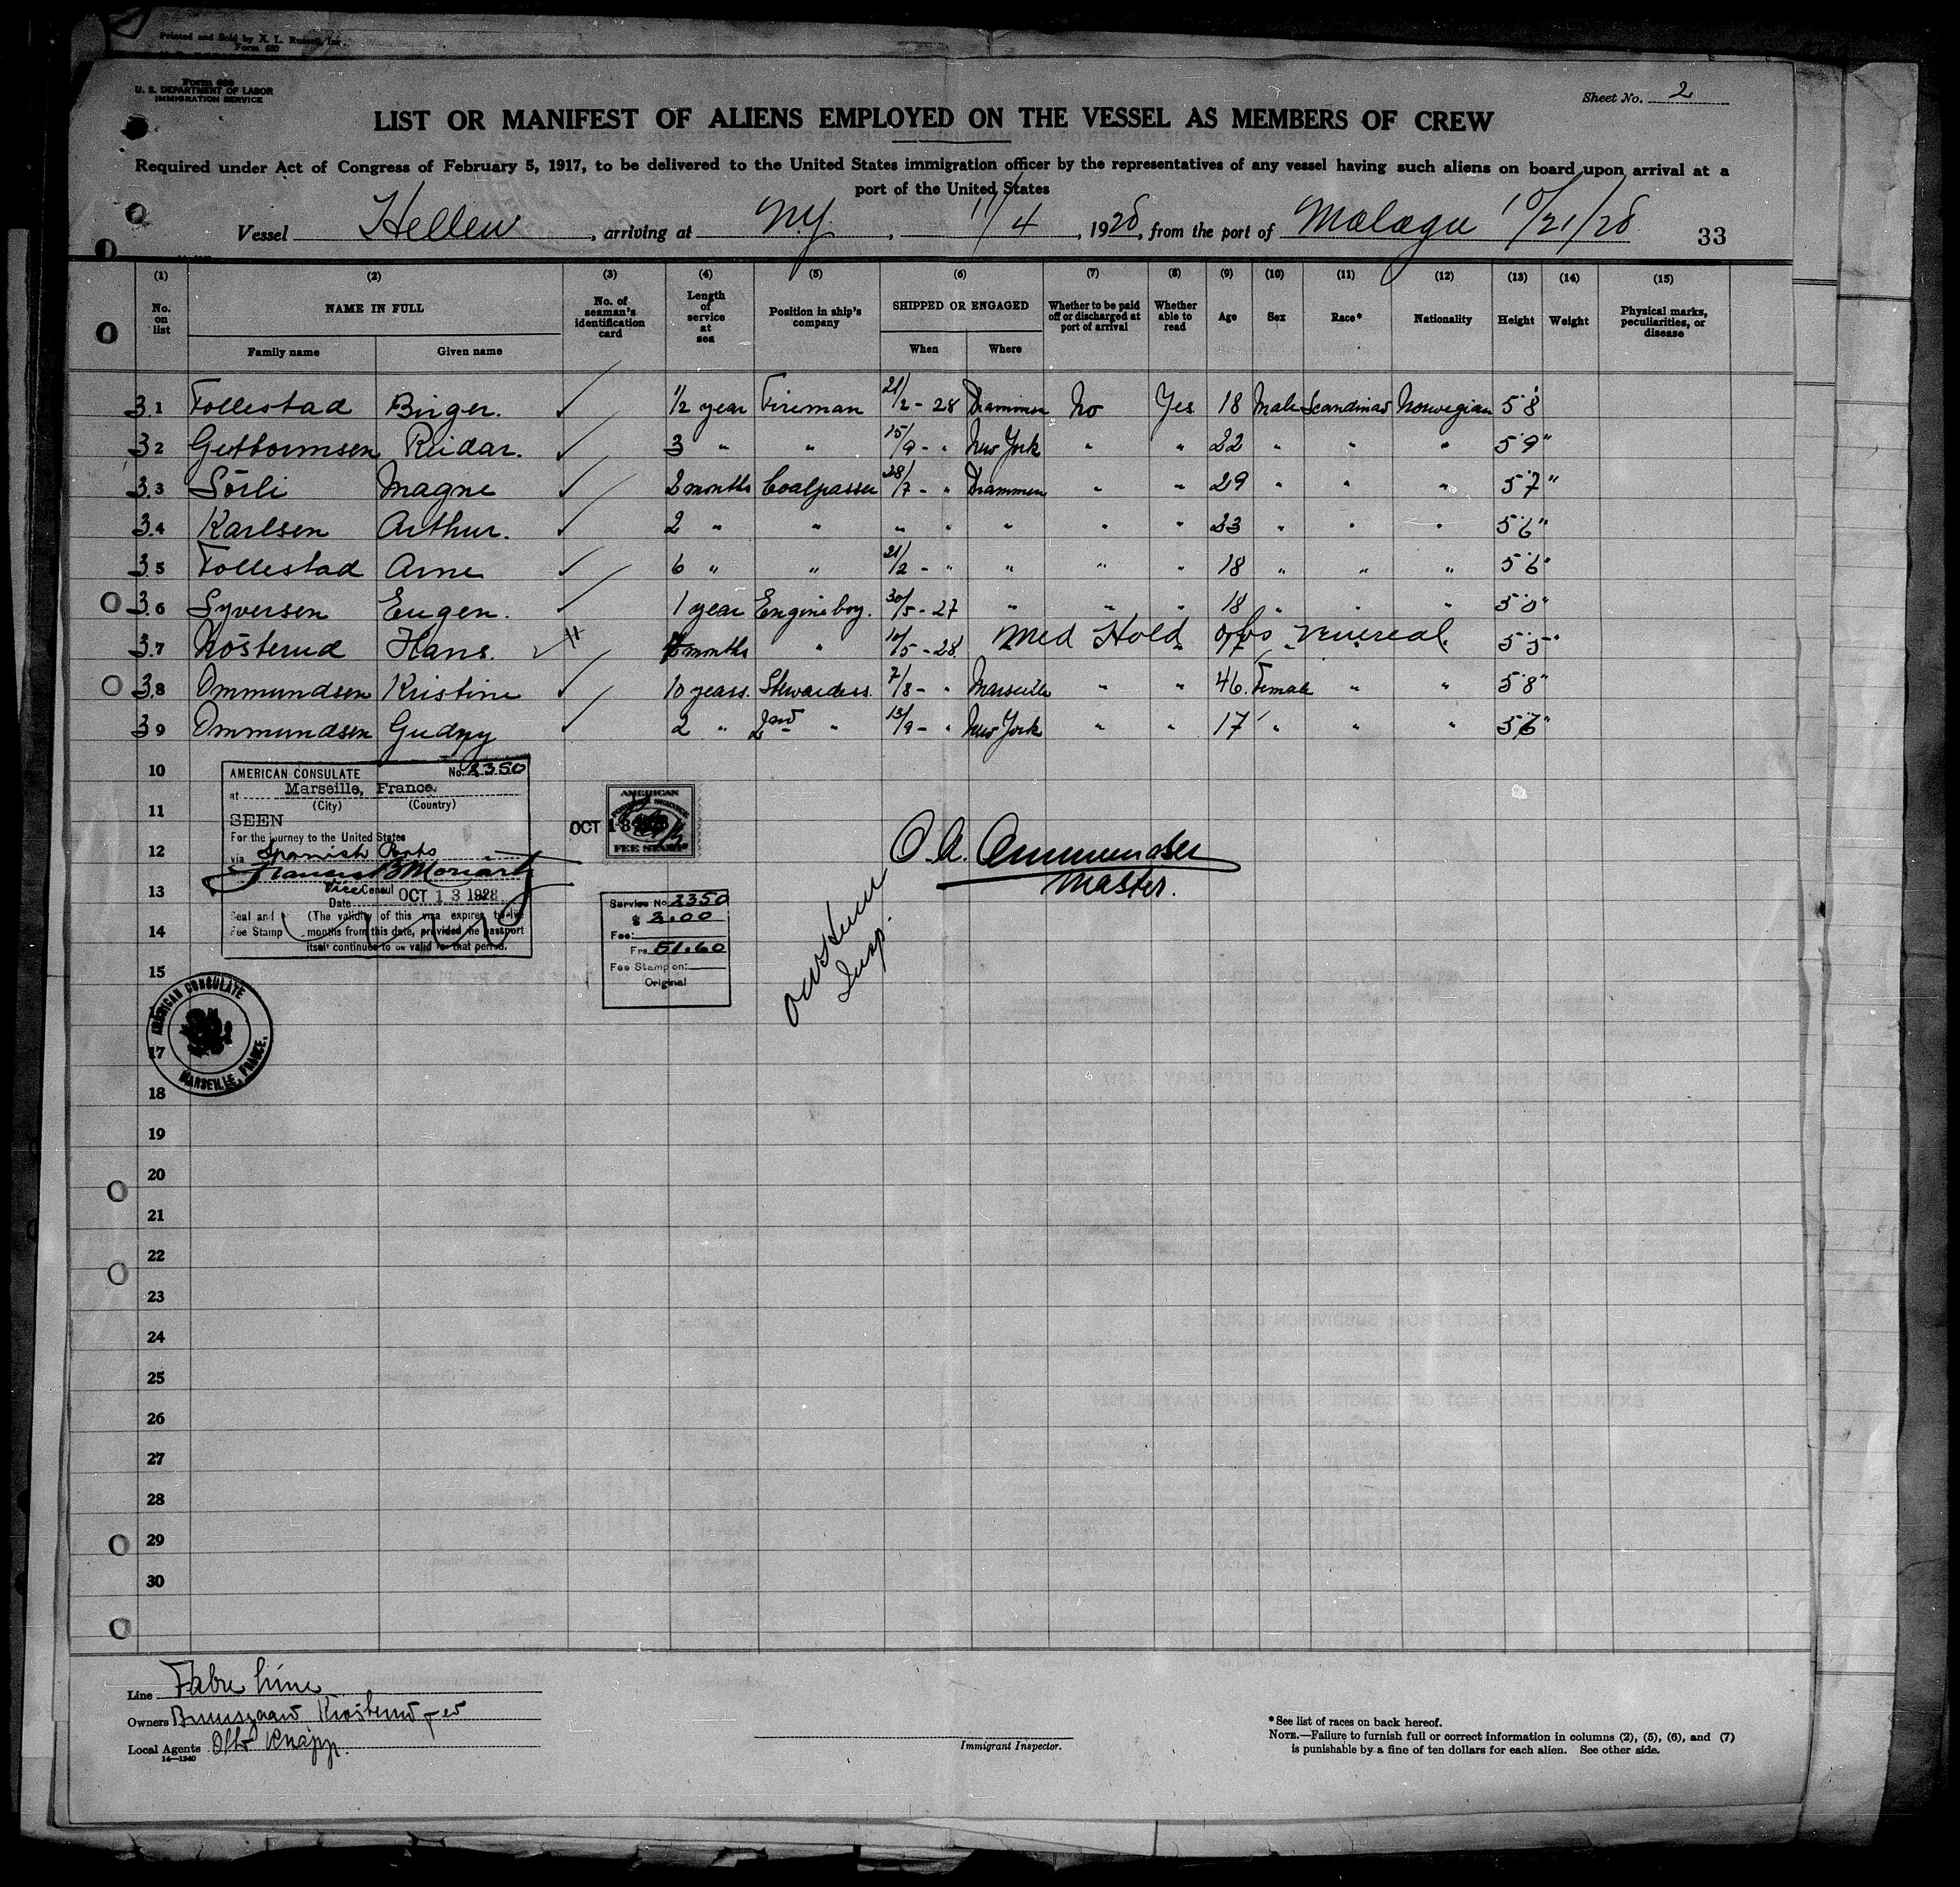 Printed and Sold by A. L. Russell, Inc.
Form 680
Form 680
U. S. DEPARTMENT OF LABOR
IMMIGRATION SERVICE
Sheet No. 2
LIST OR MANIFEST OF ALIENS EMPLOYED ON THE VESSEL AS MEMBERS OF CREW
Required under Act of Congress of February 5, 1917, to be delivered to the United States immigration officer by the representatives of any vessel having such aliens on board upon arrival at a
port of the United States
Vessel Hellen, arriving at N.Y., 11/4, 1928, from the port of Malaga 10/21/28 33
(1) (2) (3) (4) (5) (6) (7) (8) (9) (10) (11) (12) (13) (14) (15)
No. on list NAME IN FULL No. of seaman's identification card Length of service at sea Position in ship's company SHIPPED OR ENGAGED Whether to be paid off or discharged at port of arrival Whether able to read Age Sex Race* Nationality Height Weight Physical marks, peculiarities, or disease
Family name Given name When Where
31 Follestad Birger. 1/2 year Fireman 21/2 - 28 Drammen No Yes 18 Male Scandinav Norwegian 5'8
32 Guttormsen Reidar. 3 " " 15/9 - " New York " " 22 " " " 5'9"
33 Sörli Magne 2 months Coalpasser 28/7 - " Drammen " " 29 " " " 5'7"
34 Karlsen Arthur. 2 " " " " " " " 23 " " " 5'6"
35 Follestad Arne 6 " " 21/2 - " " " " 18 " " " 5'6"
36 Syversen Eugen. 1 year Engineboy. 30/5 - 27 " " " 18 " " " 5'0"
37 Hans. months " /5 - 28 Med Hold venereal. 5'5"
38 Ommundsen Kristine 10 years. Stewardess. 7/8 - " Marseille " " 46. Female " " 5'8"
39 Ommundsen Gudny 2 " 2nd " 13/9 - " New York " " 17 " " " 5'6"
10
11
12
13
14
15
17
18
19
20
21
22
23
24
25
26
27
28
29
30
AMERICAN CONSULATE No. 2350
at Marseille, France.
(City) (Country)
SEEN
For the journey to the United States
via Spanish Ports
Francis B Moriarty
Vice Consul
Date OCT 13 1928
Seal and Fee Stamp
(The validity of this visa expires twelve
months from this date, provided the passport
itself continues to be valid for that period.
OCT 13
AMERICAN
FEE STAMP
Service No. 2350
$ 2.00
Fee:
Frs. 51.60
Fee Stamp on:
Original
O. A. Ommundsen
Master.
Insp.
AMERICAN CONSULATE
MARSEILLE, FRANCE.
Line Fabre Line
Owners
Local Agents Otto Knapp.
14—1240
Immigrant Inspector.
*See list of races on back hereof.
NOTE.—Failure to furnish full or correct information in columns (2), (5), (6), and (7)
is punishable by a fine of ten dollars for each alien. See other side.